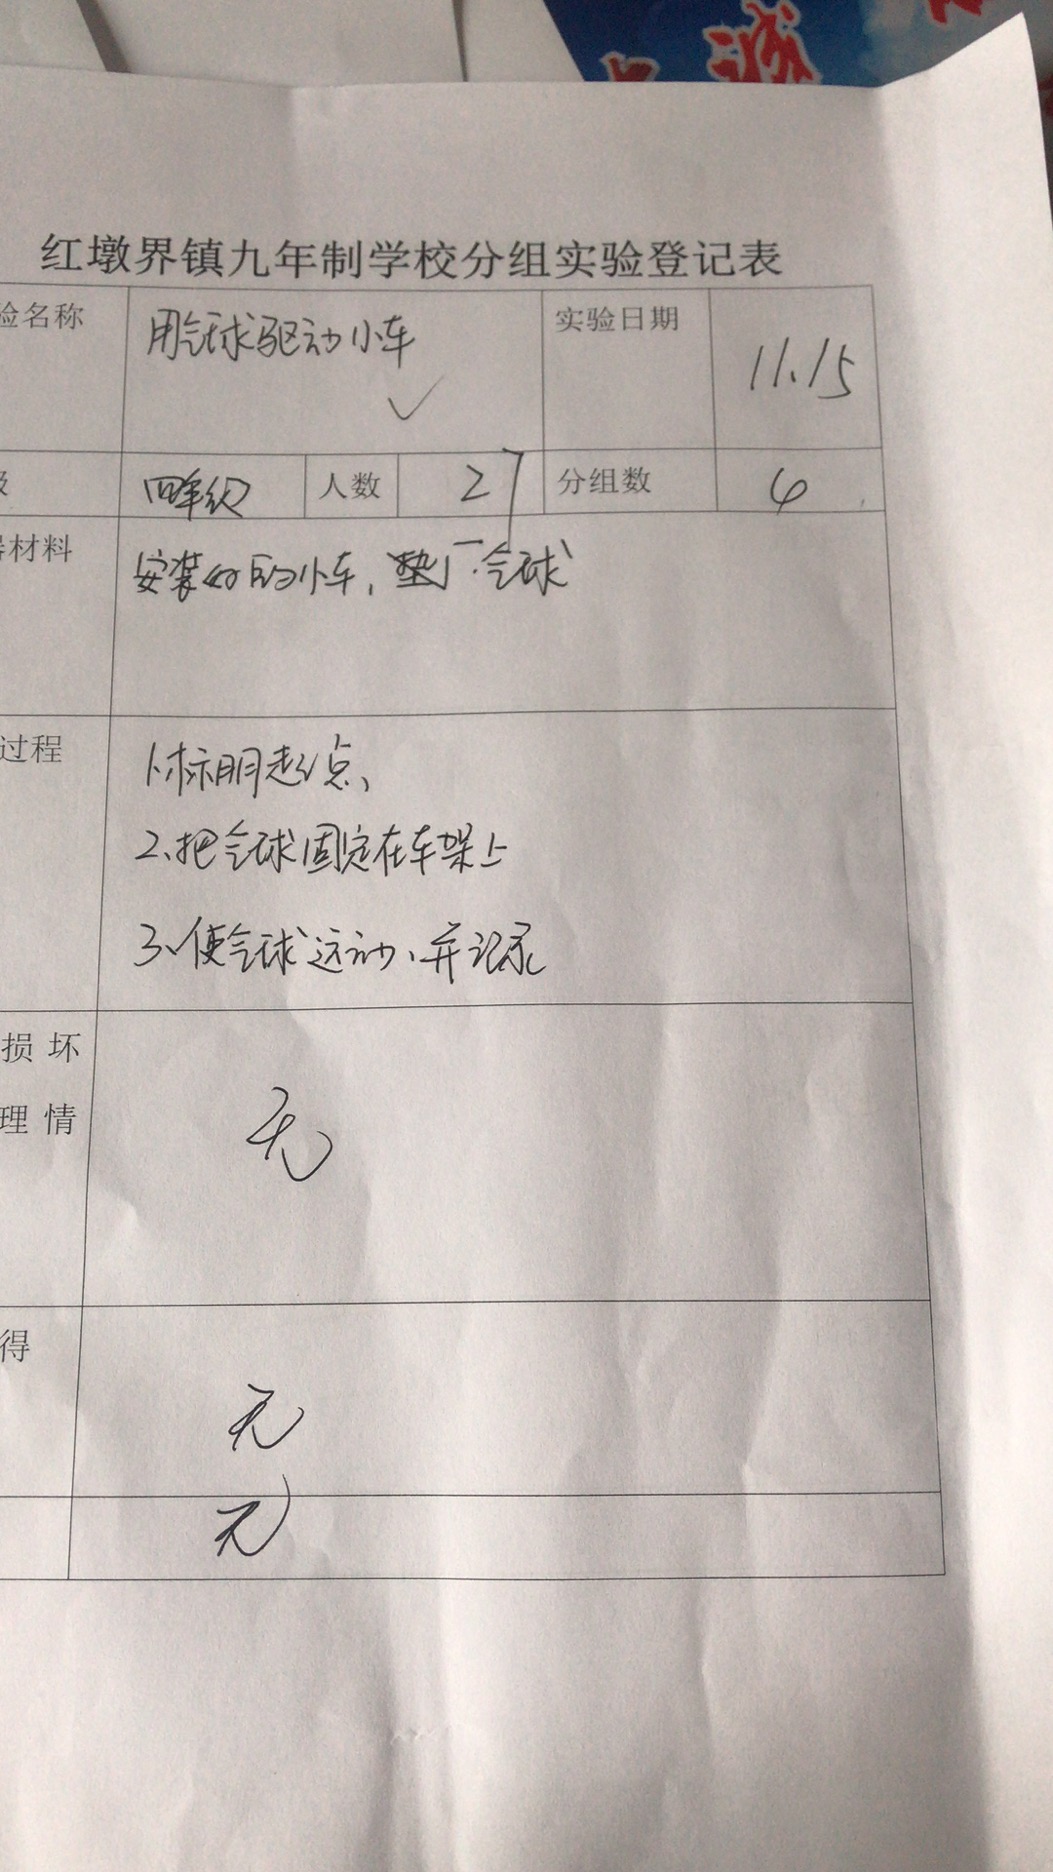 诚
红墩界镇九年制学校分组实验登记表
验名称 用气球驱动小车 实验日期 11.15
级 四年级 人数 27 分组数 6
材料 安装好的小车,垫片.气球
过程 1、标明起点、
2、把气球固定在车架上
3、使气球运动、并记录
损坏
理情 无
得 无
无